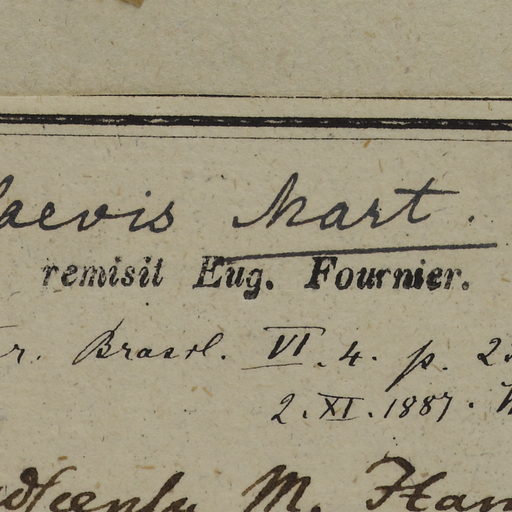 laevis Mart.
remisit Eug. Fournier.
r. Brasil. VI. 4. p. 2
2. XI. 1887.
M. Ham